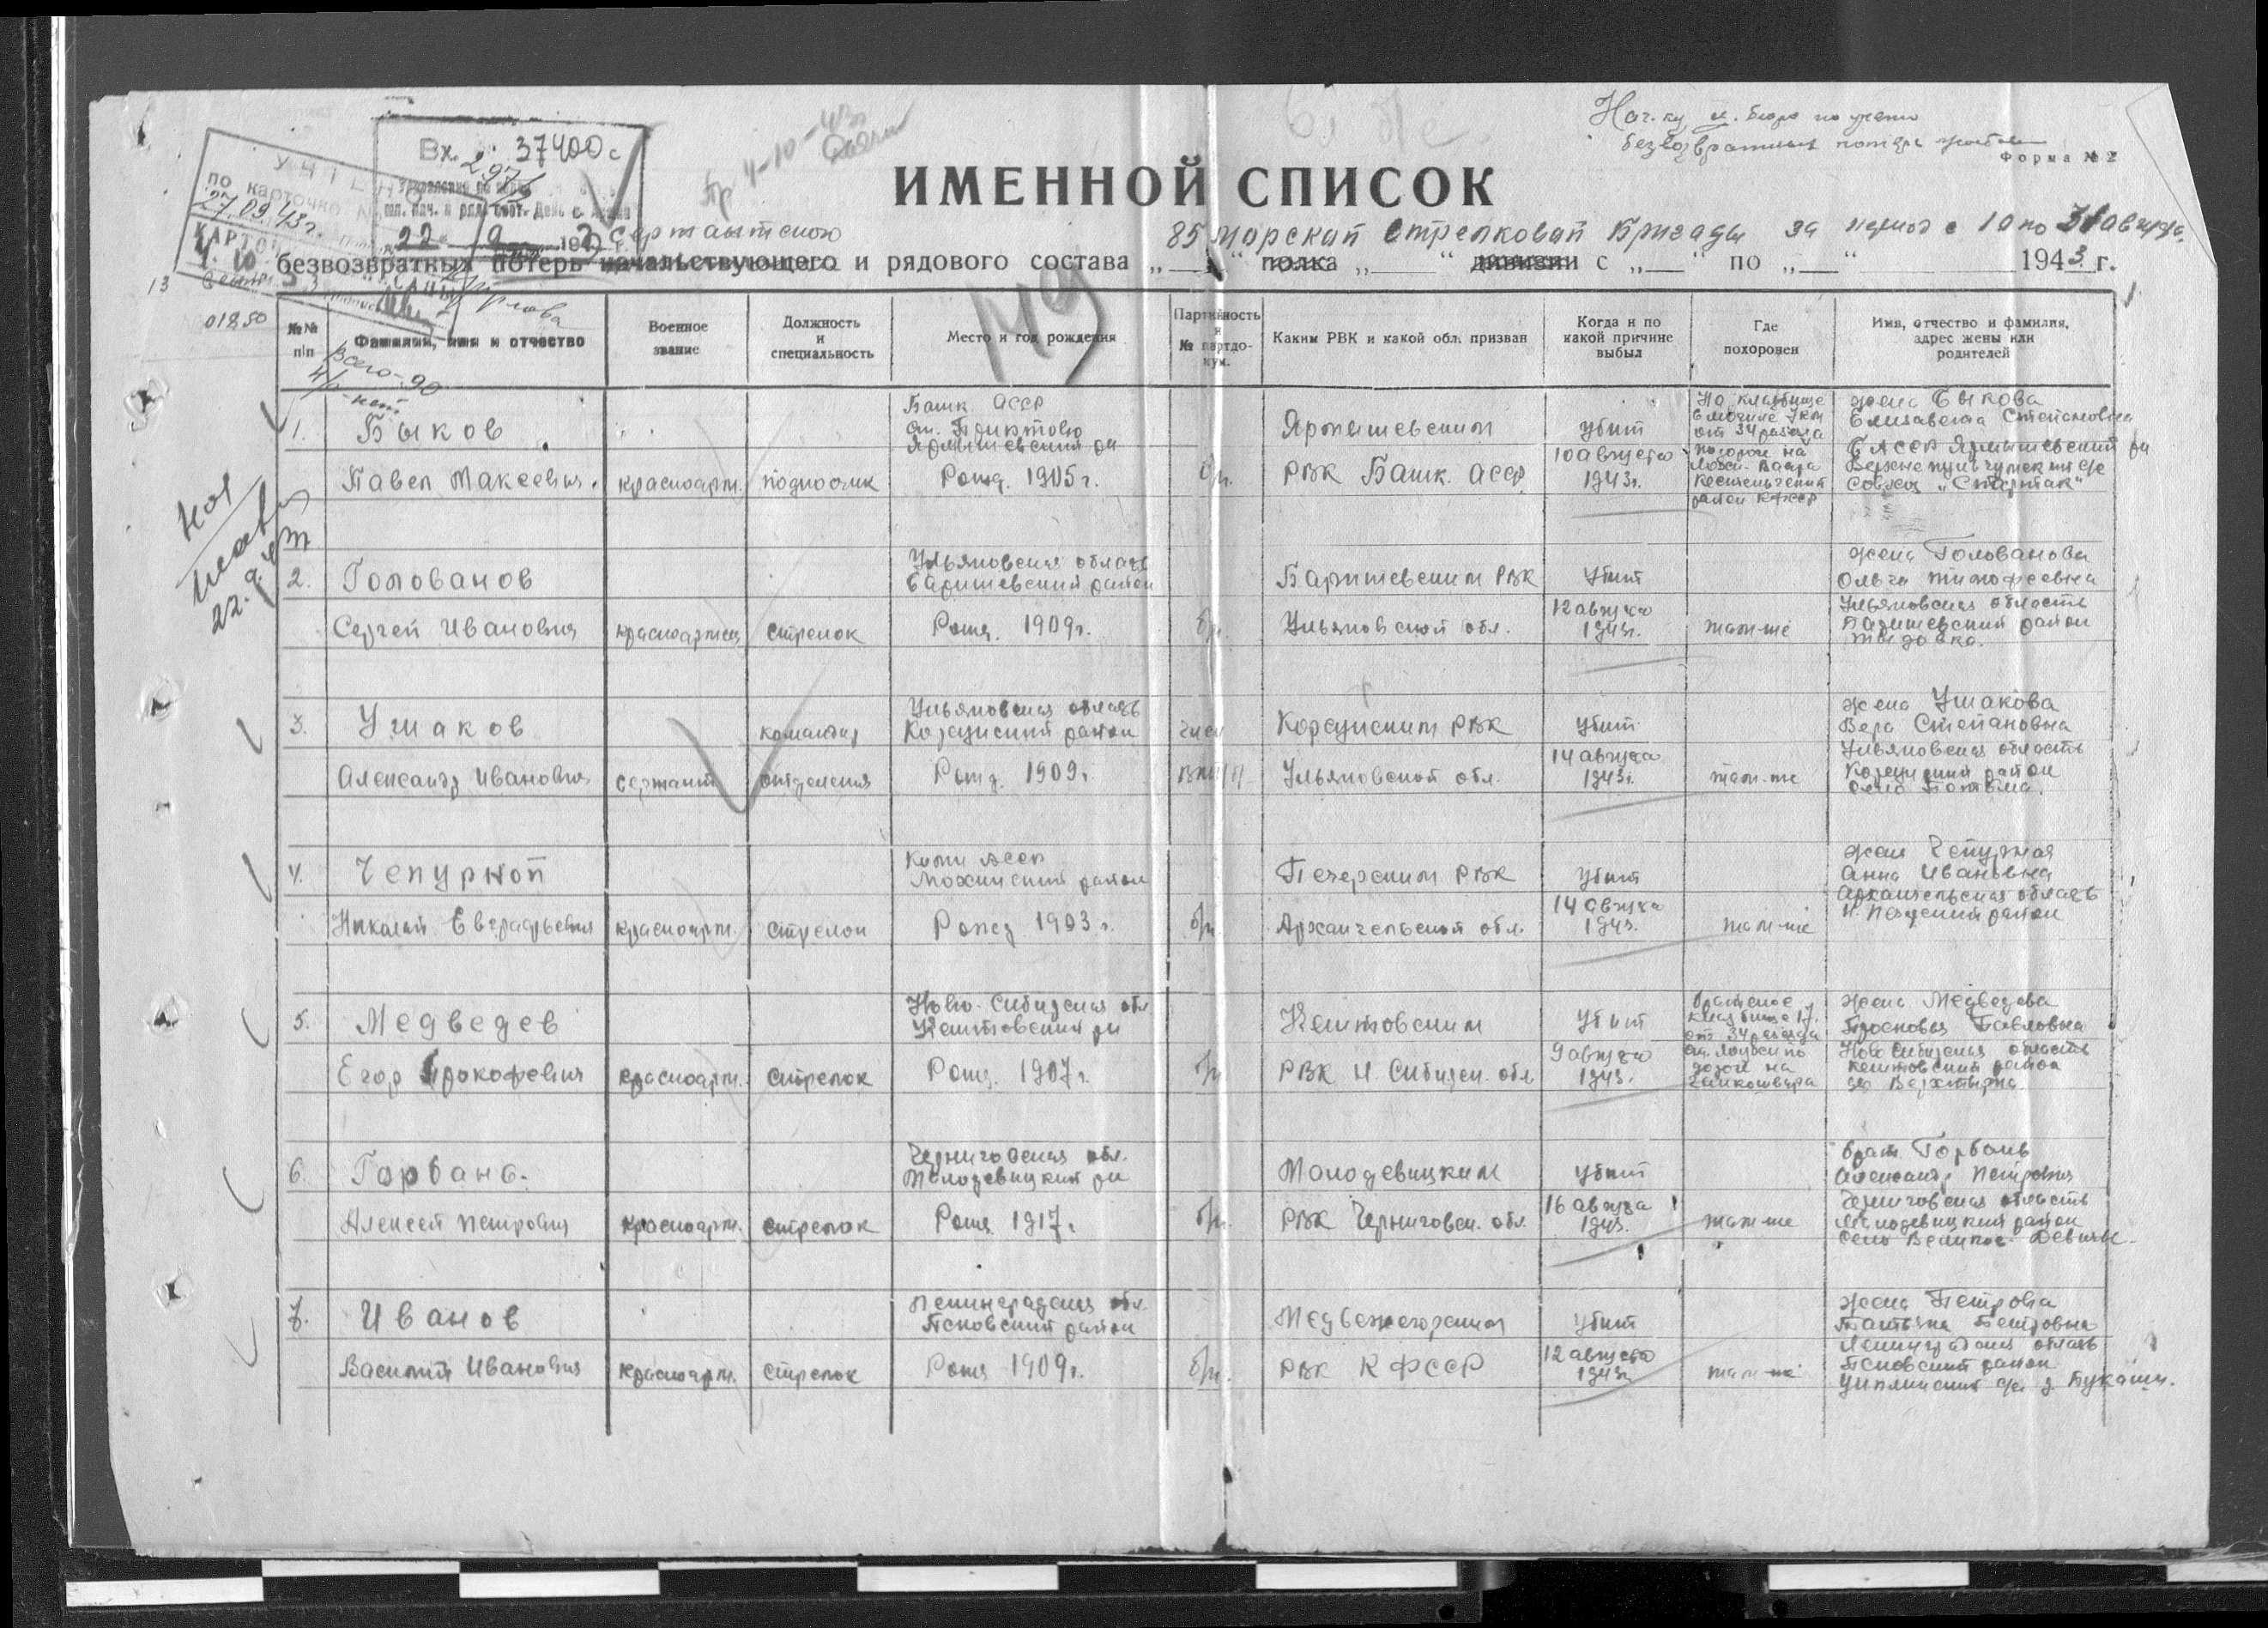 Нач-ку ц. бюро по учету
безвозвратных потерь
Форма № 2
Вх. 37400с
297
УЧТЕНО
по карточке
27.09.43г.
22 9 1943
4-10-43
ИМЕННОЙ СПИСОК
сержантского
85 морской Стрелковой Бригады за период с 10 по 31 августа
безвозвратных потерь начальствующего и рядового состава „ “ полка „ “ дивизии с „ “ по „ “ 1943 г.
13
01850
Всего-90
№№ п/п
Фамилия, имя и отчество
Военное звание
Должность и специальность
Место и год рождения
Партийность и № партдокум.
Каким РВК и какой обл. призван
Когда и по какой причине выбыл
Где похоронен
Имя, отчество и фамилия, адрес жены или родителей
1. Быков
Павел Макеевич
красноарм.
подносчик
Башк АССР
Рожд. 1905 г.
б/п.
Ярмышевским
РВК Башк. АССР
убит
10 августа
1943г.
На кладбище
от 34 разъезда
по дороге на
Кестеньгский
район КФССР
жена Быкова
Елизавета Степановна
БАССР Ярмышевский рн
совхоз „Спартак“
22.9.43
2. Голованов
Сергей Иванович
красноармеец
стрелок
Ульяновская область
Барышевский район
Рожд. 1909г.
б/п.
Барышевским РВК
Ульяновской обл.
убит
12 августа
1943г.
там-же
жена Голованова
Ольга Тимофеевна
Ульяновская область
Барышевский район
3. Ушаков
Александр Иванович
сержант
командир
отделения
Ульяновская область
Карсунский район
Рожд. 1909г.
член
ВКП/б/
Карсунским РВК
Ульяновской обл.
убит
14 августа
1943г.
там-же
жена Ушакова
Вера Степановна
Ульяновская область
Карсунский район
село Потьма.
4. Чепурной
Николай Евграфьевич
красноарм.
стрелок
Коми АССР
район
Рожд 1903 г.
б/п.
Печерским РВК
Архангельской обл.
убит
14 августа
1943г.
там-же
жена Чепурная
Анна Ивановна
Архангельская область
район
5. Медведев
Егор Прокофевич
красноарм.
стрелок
Ново-Сибирская обл.
Кештовский рн
Рожд. 1907г.
б/п
Кештовским
РВК Н. Сибирск. обл
убит
9 августа
1943г.
братское
кладбище
от 34 разъезда
ст. Лоухи по
дороге на
жена Медведева
Просковья Павловна
Ново Сибирская область
Кештовский район
6. Горбань.
Алексей Петрович
красноарм.
стрелок
Черниговская обл.
Малодевицкий рн
Рожд 1917г.
б/п.
Малодевицким
РВК Черниговск. обл.
убит
16 августа
1943.
там-же
брат Горбань
Александр Петрович
Черниговская область
Малодевицкий район
село Великое-
7. Иванов
Василий Иванович
красноарм.
стрелок
Ленинградская обл.
Псковский район
Рожд 1909г.
б/п.
Медвежегорским
РВК КФССР
убит
12 августа
1943г
там-же
жена Петрова
Татьяна Петровна
Ленинградская область
Псковский район